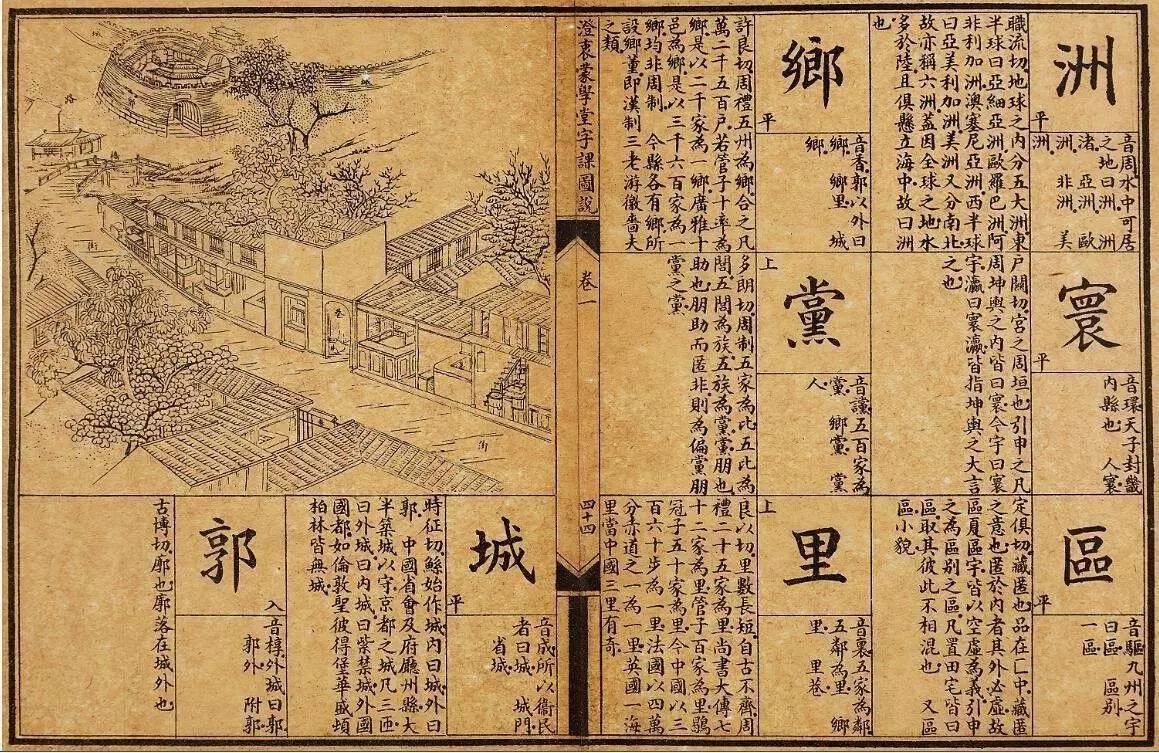 洲
平
音周水中可居
之地曰洲 洲
渚 亞洲 歐
洲 非洲 美
洲
職流切地球之內分五大洲東
半球曰亞細亞洲歐羅巴洲阿
非利加洲澳塞尼亞洲西半球
曰亞美利加洲美洲又分南北
故亦稱六洲蓋因全球之地水
多於陸且俱懸立海中故曰洲
也
寰
平
音環天子封畿
內縣也 人寰
戶關切宮之周垣也引申之凡
周坤輿之內皆曰寰今宇曰寰
宇瀛曰寰瀛皆指坤輿之大言
之也
區
平
音驅九州之宇
曰區 區別
一區
定俱切藏匿也品在匚中藏匿
之意也匿於內者其外必虛故
區夏區宇皆以空虛為義引申
之為區別之區凡置田宅皆曰
區取其彼此不相混也 又區
區小貌
鄉
平
音香郭以外曰
鄉 鄉里 城
鄉
許良切周禮五州為鄉合之凡
萬二千五百戶若管子十率為
鄉是以二千家為一鄉廣雅十
邑為鄉是以三千六百家為一
鄉均非周制 今縣各有鄉所
設鄉董即漢制三老游徼嗇夫
之類
黨
上
音讜五百家為
黨 鄉黨 黨
人
多朗切周制五家為比五比為
閭五閭為族五族為黨黨朋也
助也朋助而匿非則為偏黨朋
黨之黨
里
上
音裏五家為鄰
五鄰為里 鄉
里 里巷
良以切里數長短自古不齊周
禮二十五家為里尚書大傳七
十二家為里管子百家為里鶡
冠子五十家為里今中國以三
百六十步為一里法國以四萬
分赤道之一為一里英國一海
里當中國三里有奇
澄衷蒙學堂字課圖說
卷一
四十四
路
街
巷
街
城
平
音成所以衞民
者曰城 城門
省城
時征切鯀始作城內曰城外曰
郭 中國省會及府廳州縣大
半築城以守京都之城凡三匝
曰外城曰內城曰紫禁城外國
國都如倫敦聖彼得堡華盛頓
柏林皆無城
郭
入
音椁外城曰郭
郭外 附郭
古博切廓也廓落在城外也